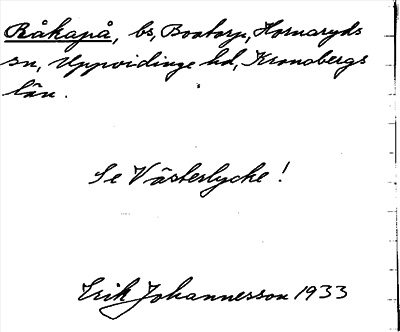 Råkapå, bs, Boatorp, Hornaryds
sn, Uppvidinge hd, Kronobergs
län.
Se Västerlycke!
Erik Johannesson 1933